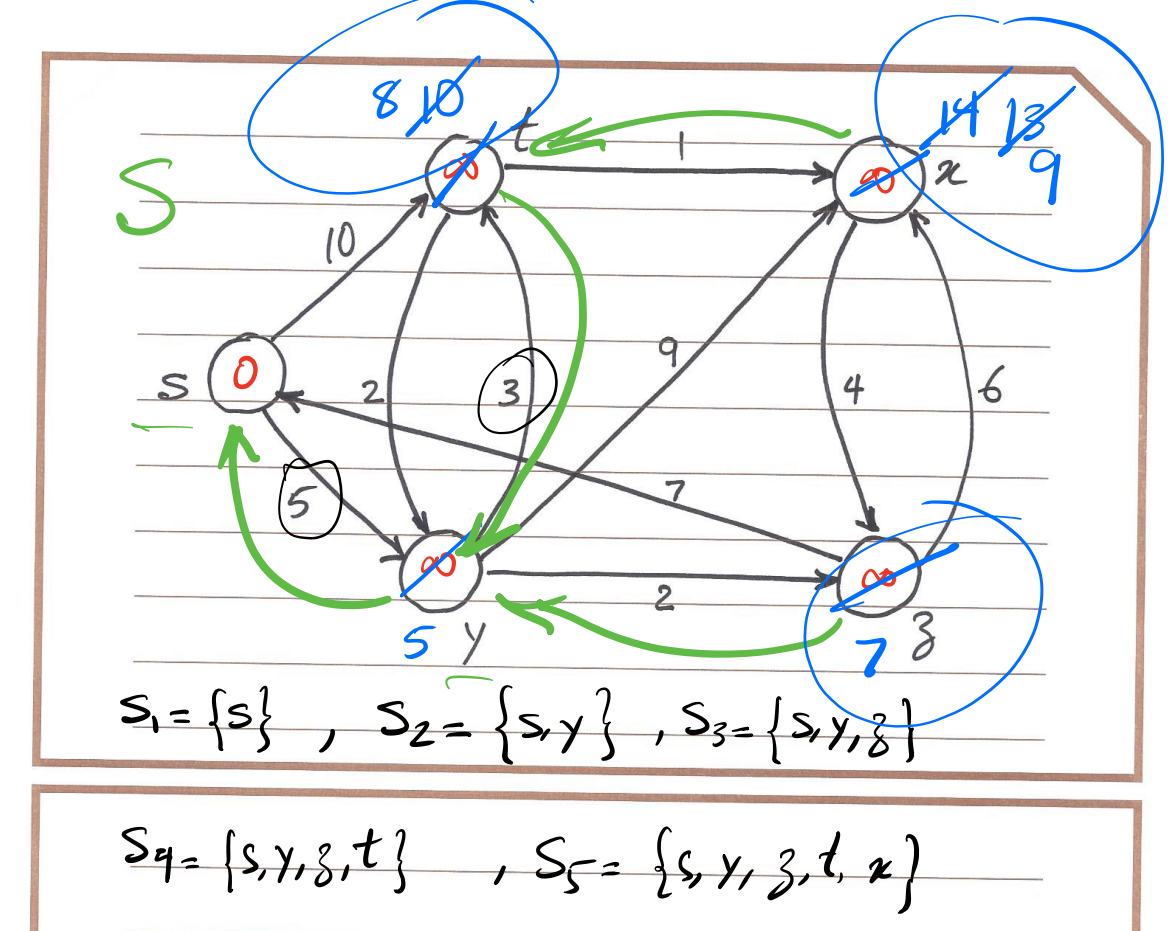 8 10
14 13
t
1
9
∞
∞
x
S
10
0
9
s
2
3
4
6
5
7
∞
∞
2
5 y
7 z
S₁ = {s} , S₂ = {s, y} , S₃ = {s, y, z}
S₄ = {s, y, z, t} , S₅ = {s, y, z, t, x}